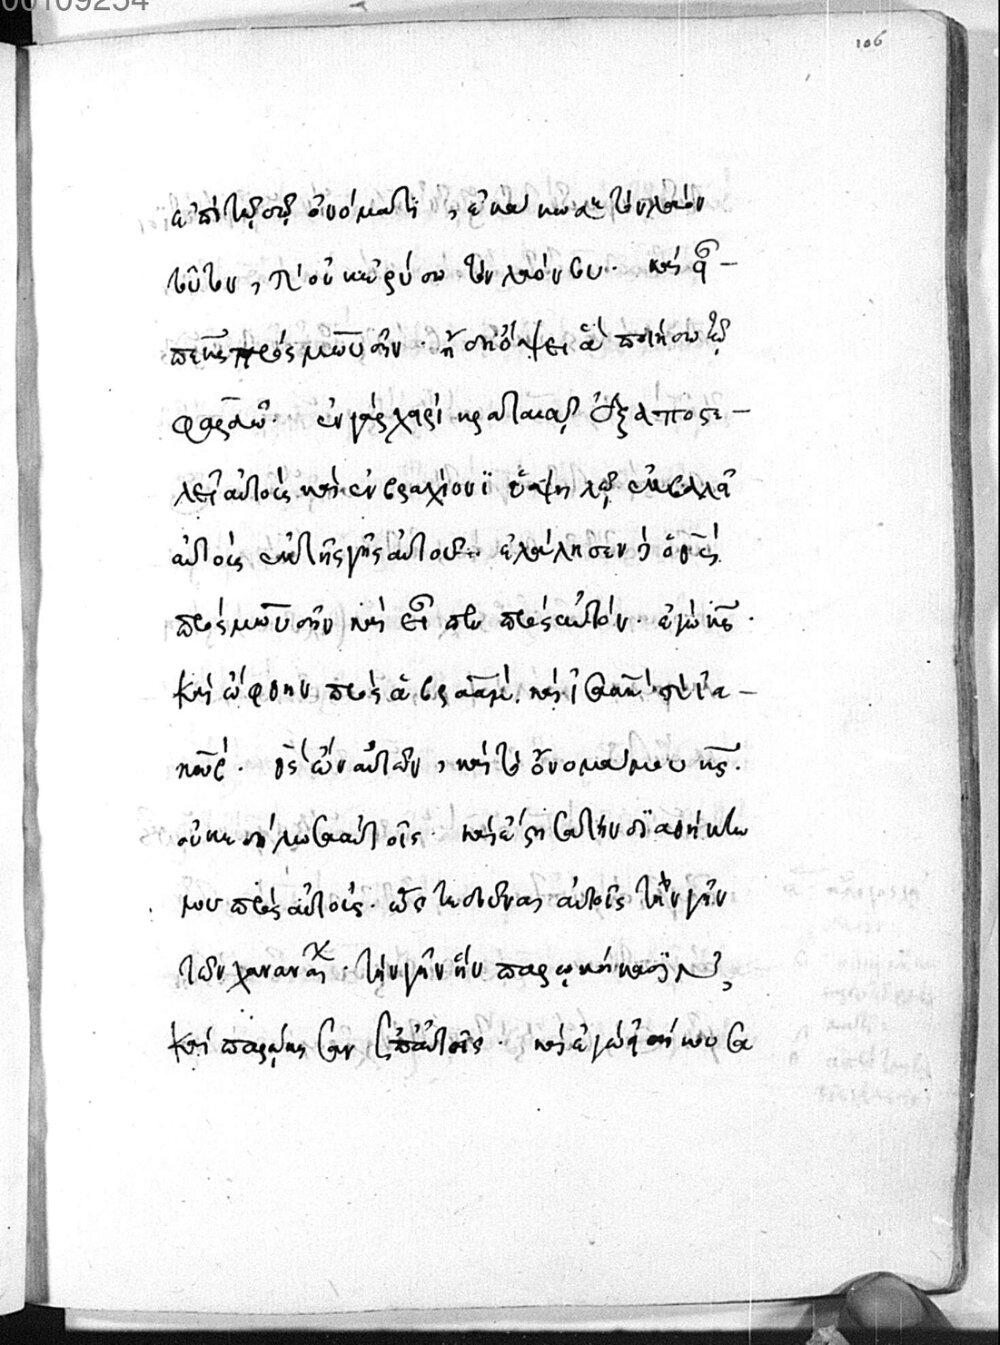 106
ἐπὶ τῷ σῷ ὀνόματι, ἐκάκωσε τὸν λαὸν
τοῦτον, κ' οὐκ ἐρύσω τὸν λαόν σου. καὶ εἶ-
πε κς πρὸς μωυσῆν. ἤδη ὄψει ἃ ποιήσω τῷ
φαραώ. ἐν γὰρ χειρὶ κραταιᾷ ἐξαποστε-
λεῖ αὐτοὺς καὶ ἐν βραχίονι ὑψηλῷ ἐκβαλεῖ
αὐτοὺς ἐκ τῆς γῆς αὐτοῦ. ἐλάλησεν δὲ ὁ θς
πρὸς μωυσῆν καὶ εἶπεν πρὸς αὐτόν. ἐγὼ κς.
καὶ ὤφθην πρὸς ἀβραὰμ. καὶ ἰσαὰκ καὶ ἰα-
κώβ. θς ὢν αὐτῶν, καὶ τὸ ὄνομά μου κς.
οὐκ ἐδήλωσα αὐτοῖς. καὶ ἔστησα τὴν διαθήκην
μου πρὸς αὐτούς. ὥστε δοῦναι αὐτοῖς τὴν γῆν
τῶν χαναναίων. τὴν γῆν ἣν παρῳκήκασιν,
καὶ παρῴκησαν ἐπ' αὐτῆς. καὶ ἐγὼ εἰσήκουσα